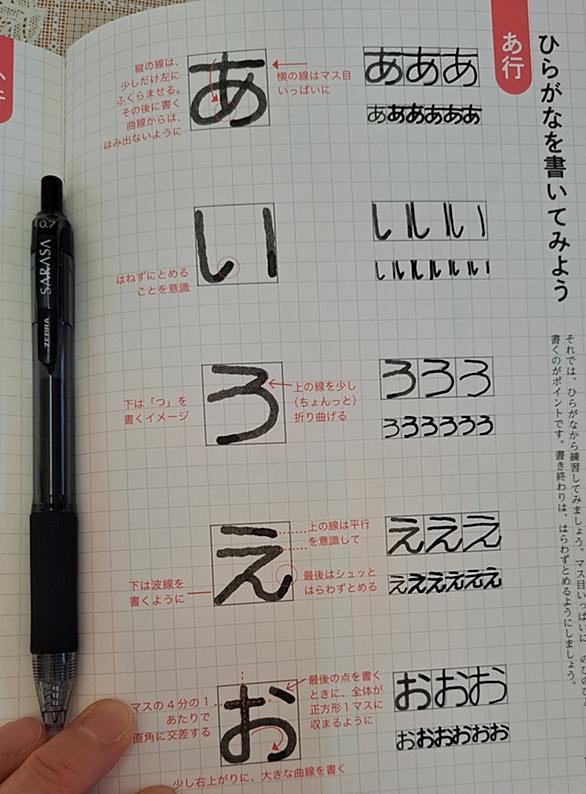 ひらがなを書いてみよう
それでは、ひらがなから練習してみましょう。マス目いっぱいに、のびの
書くのがポイントです。書き終わりは、はらわずとめるようにしましょう。
あ行
あ
縦の線は、
少しだけ左に
ふくらませる。
その後に書く
曲線からは、
はみ出ないように
横の線はマス目
いっぱいに
あああ
ああああああ
い
はねずにとめる
ことを意識
いいい
いいいいいい
ろ
下は「つ」を
書くイメージ
上の線を少し
（ちょんっと）
折り曲げる
ろろろ
ろろろろろろ
え
上の線は平行
を意識して
下は波線を
書くように
最後はシュッと
はらわずとめる
えええ
ええええええ
お
マスの4分の1
あたりで
直角に交差する
最後の点を書く
ときに、全体が
正方形1マスに
収まるように
少し右上がりに、大きな曲線を書く
おおお
おおおおおお
0.7
SARASA
ZEBRA